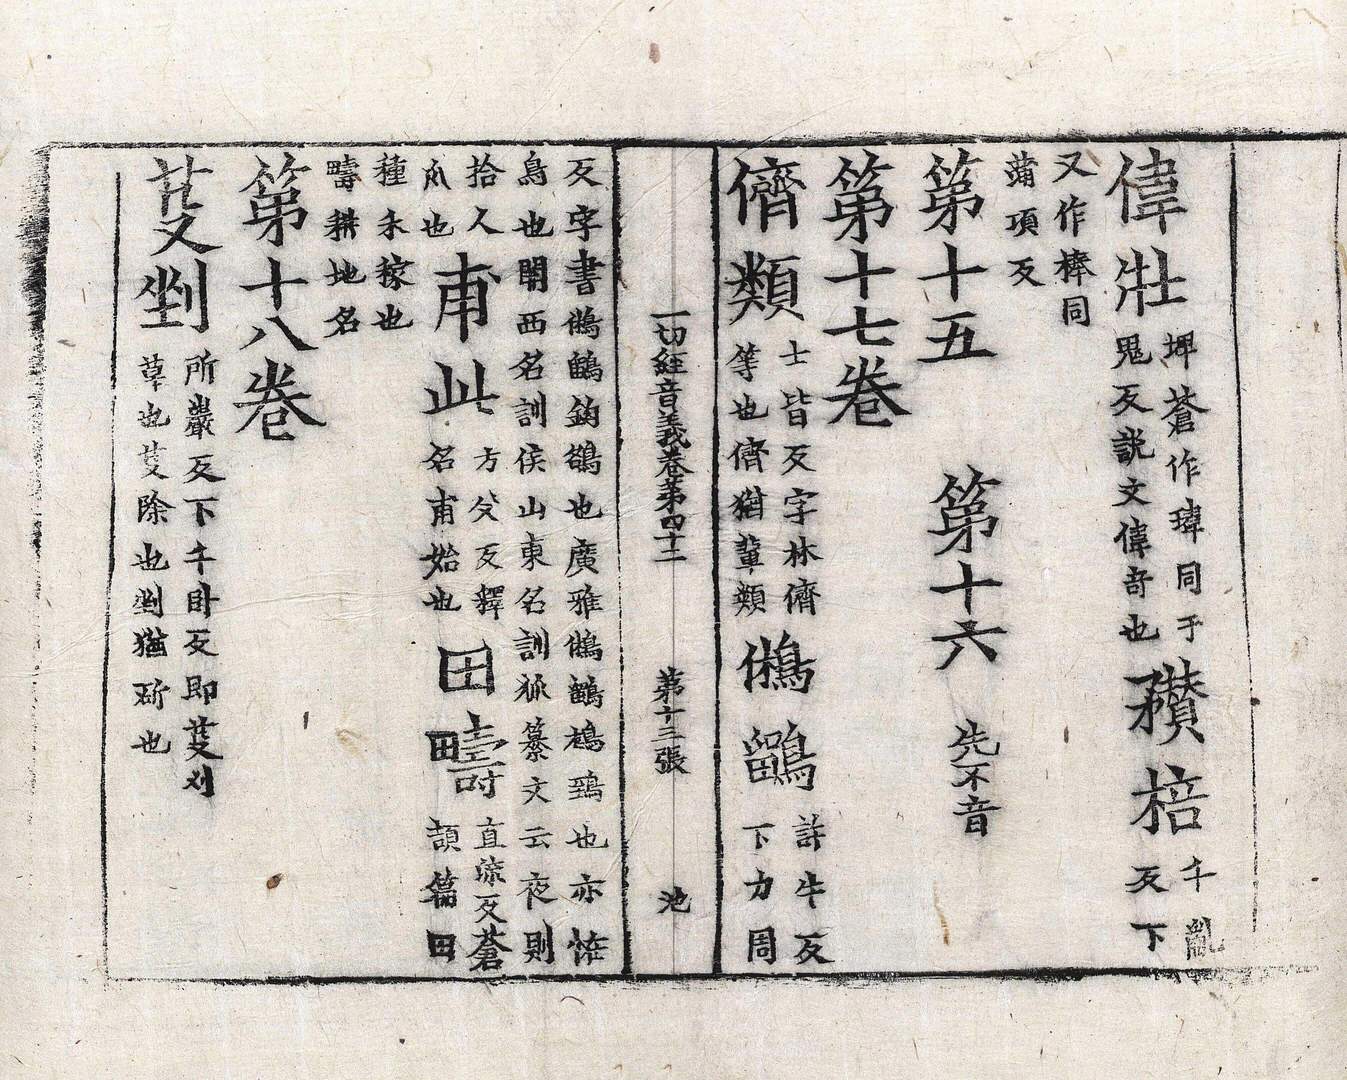 偉壯 埤蒼作瑋同于鬼反說文偉奇也 穳棓 千亂反下
又作棒同蒲項反
第十五 第十六 先不音
第十七卷
儕類 士皆反字林儕等也儕猶輩類 鵂鶹 許牛反下力周
一切經音義卷第四十二 第十三張 池
反字書鵂鶹鉤鵅也廣雅鵂鶹鴟也亦恠
鳥也關西名訓侯山東名訓狐纂文云夜則
拾人爪也 甫此 方父反釋名甫始也 田疇 直流反蒼頡篇田
種禾稼也疇耕地名
第十八卷
芟剉 所巖反下千臥反即芟刈草也芟除也剉猶斫也